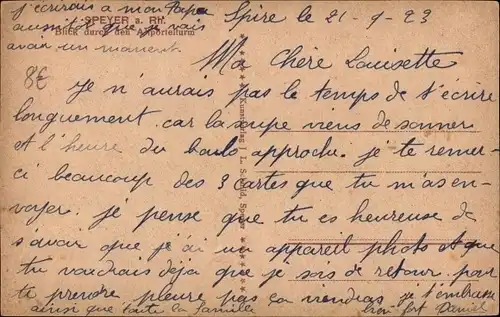 j'écrirais a mon Papa
aussitot que je vais
avoir un moment
SPEYER a. Rh.
Blick durch den Altpörtelturm
Spire le 21-9-23
Ma Chère Louisette
8€
Je n'aurais pas le temps de t'écrire
longuement car la soupe viens de sonner
et l'heure du approche. je te remer-
ci beaucoup des 3 cartes que tu m'as en-
voyer. je pense que tu es heureuse de
savoir que j'ai un appareil photo et que
tu voudrais déja que je sois de retour pour
te prendre pleure pas ça viendras je t'embrasse
ainsi que toute la famille bien fort Daniel
Kunstverlag J. L. Speyer